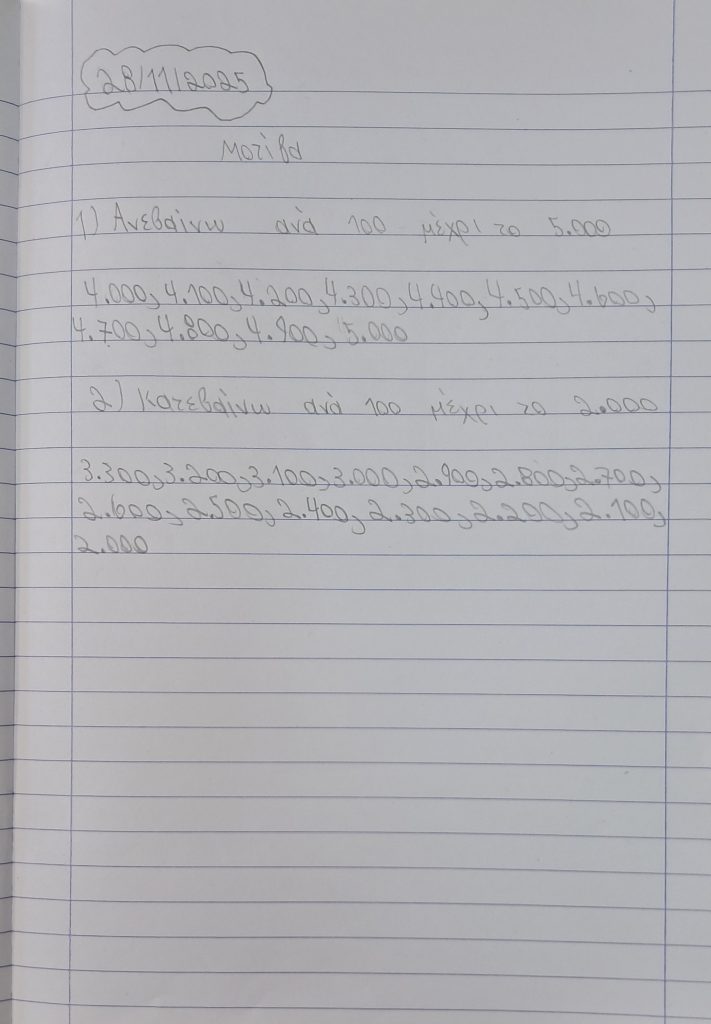 28/11/2025
Μοτίβα
1) Ανεβαίνω ανά 100 μέχρι το 5.000
4.000, 4.100, 4.200, 4.300, 4.400, 4.500, 4.600,
4.700, 4.800, 4.900, 5.000
2) Κατεβαίνω ανά 100 μέχρι το 2.000
3.300, 3.200, 3.100, 3.000, 2.900, 2.800, 2.700,
2.600, 2.500, 2.400, 2.300, 2.200, 2.100,
2.000